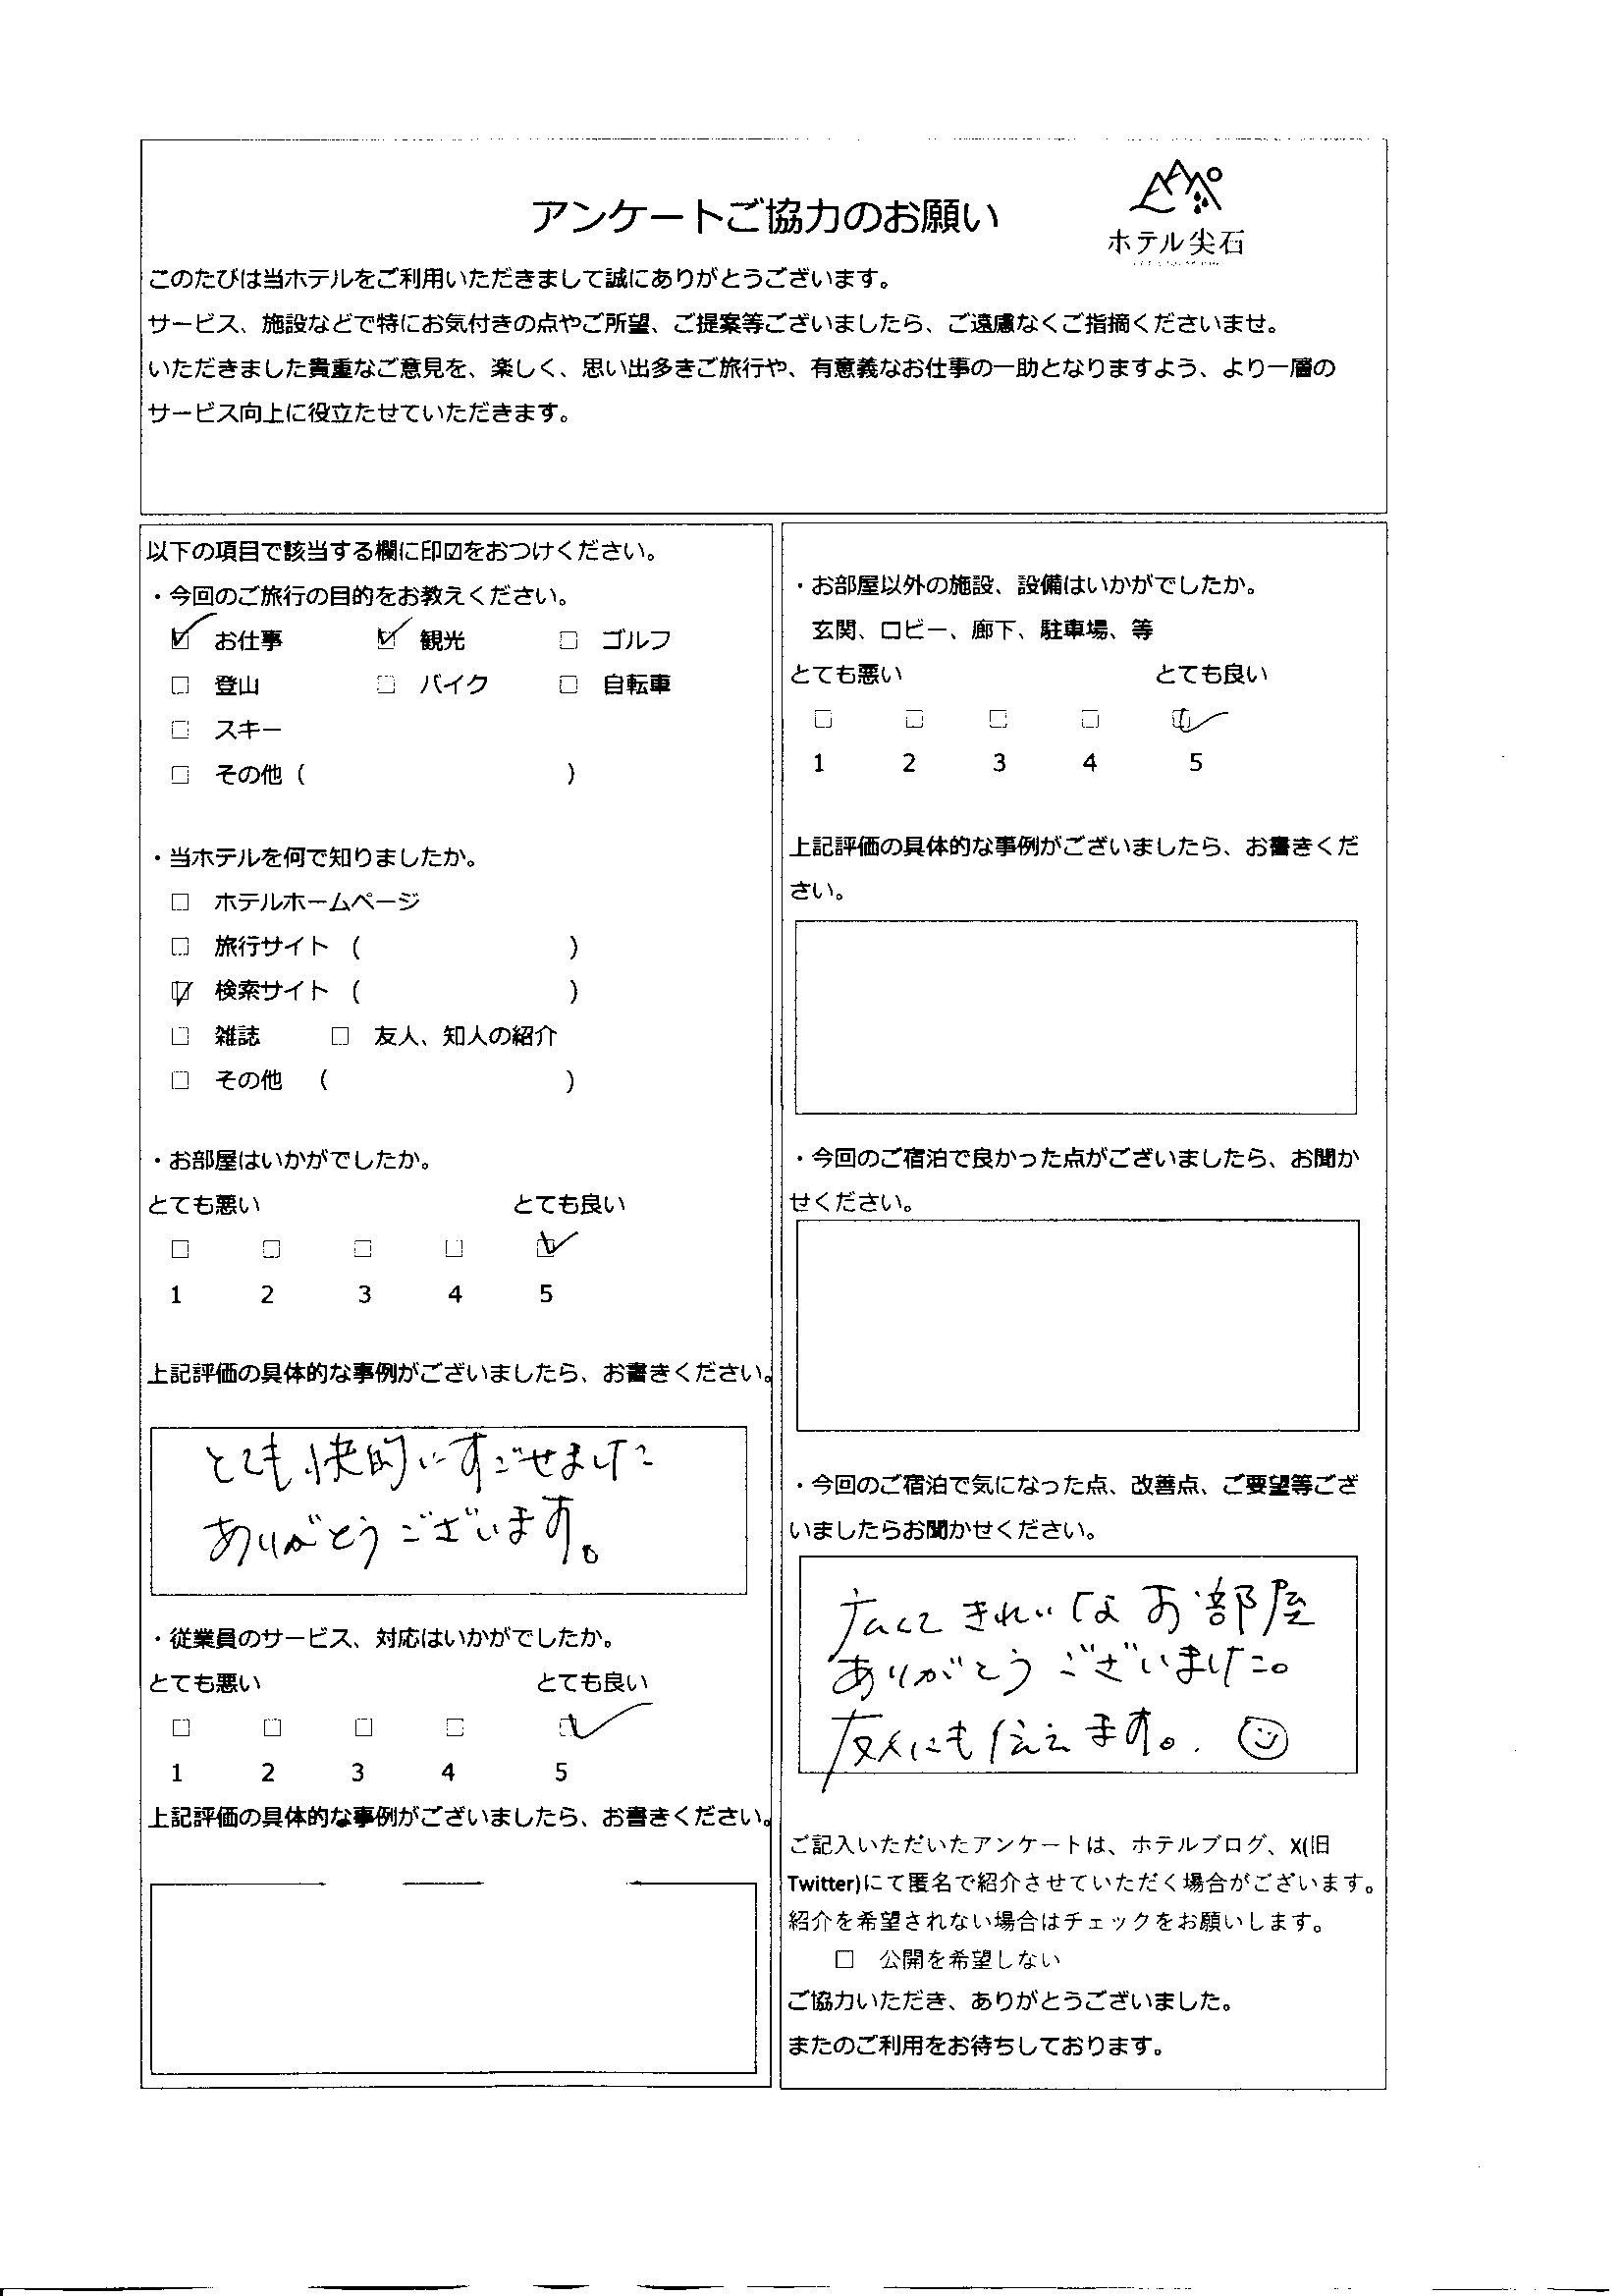 アンケートご協力のお願い
ホテル尖石
このたびは当ホテルをご利用いただきまして誠にありがとうございます。
サービス、施設などで特にお気付きの点やご所望、ご提案等ございましたら、ご遠慮なくご指摘くださいませ。
いただきました貴重なご意見を、楽しく、思い出多きご旅行や、有意義なお仕事の一助となりますよう、より一層の
サービス向上に役立たせていただきます。
以下の項目で該当する欄に印☑をおつけください。
・今回のご旅行の目的をお教えください。
☑ お仕事 ☑ 観光 □ ゴルフ
□ 登山 □ バイク □ 自転車
□ スキー
□ その他 ( )
・当ホテルを何で知りましたか。
□ ホテルホームページ
□ 旅行サイト ( )
☑ 検索サイト ( )
□ 雑誌 □ 友人、知人の紹介
□ その他 ( )
・お部屋はいかがでしたか。
とても悪い とても良い
□ □ □ □ ☑
1 2 3 4 5
上記評価の具体的な事例がございましたら、お書きください。
とても快的にすごせました
ありがとうございます。
・従業員のサービス、対応はいかがでしたか。
とても悪い とても良い
□ □ □ □ ☑
1 2 3 4 5
上記評価の具体的な事例がございましたら、お書きください。
・お部屋以外の施設、設備はいかがでしたか。
玄関、ロビー、廊下、駐車場、等
とても悪い とても良い
□ □ □ □ ☑
1 2 3 4 5
上記評価の具体的な事例がございましたら、お書きくだ
さい。
・今回のご宿泊で良かった点がございましたら、お聞か
せください。
・今回のご宿泊で気になった点、改善点、ご要望等ござ
いましたらお聞かせください。
広くてきれいなお部屋
ありがとうございました。
友人にも伝えます。
ご記入いただいたアンケートは、ホテルブログ、X(旧
Twitter)にて匿名で紹介させていただく場合がございます。
紹介を希望されない場合はチェックをお願いします。
□ 公開を希望しない
ご協力いただき、ありがとうございました。
またのご利用をお待ちしております。